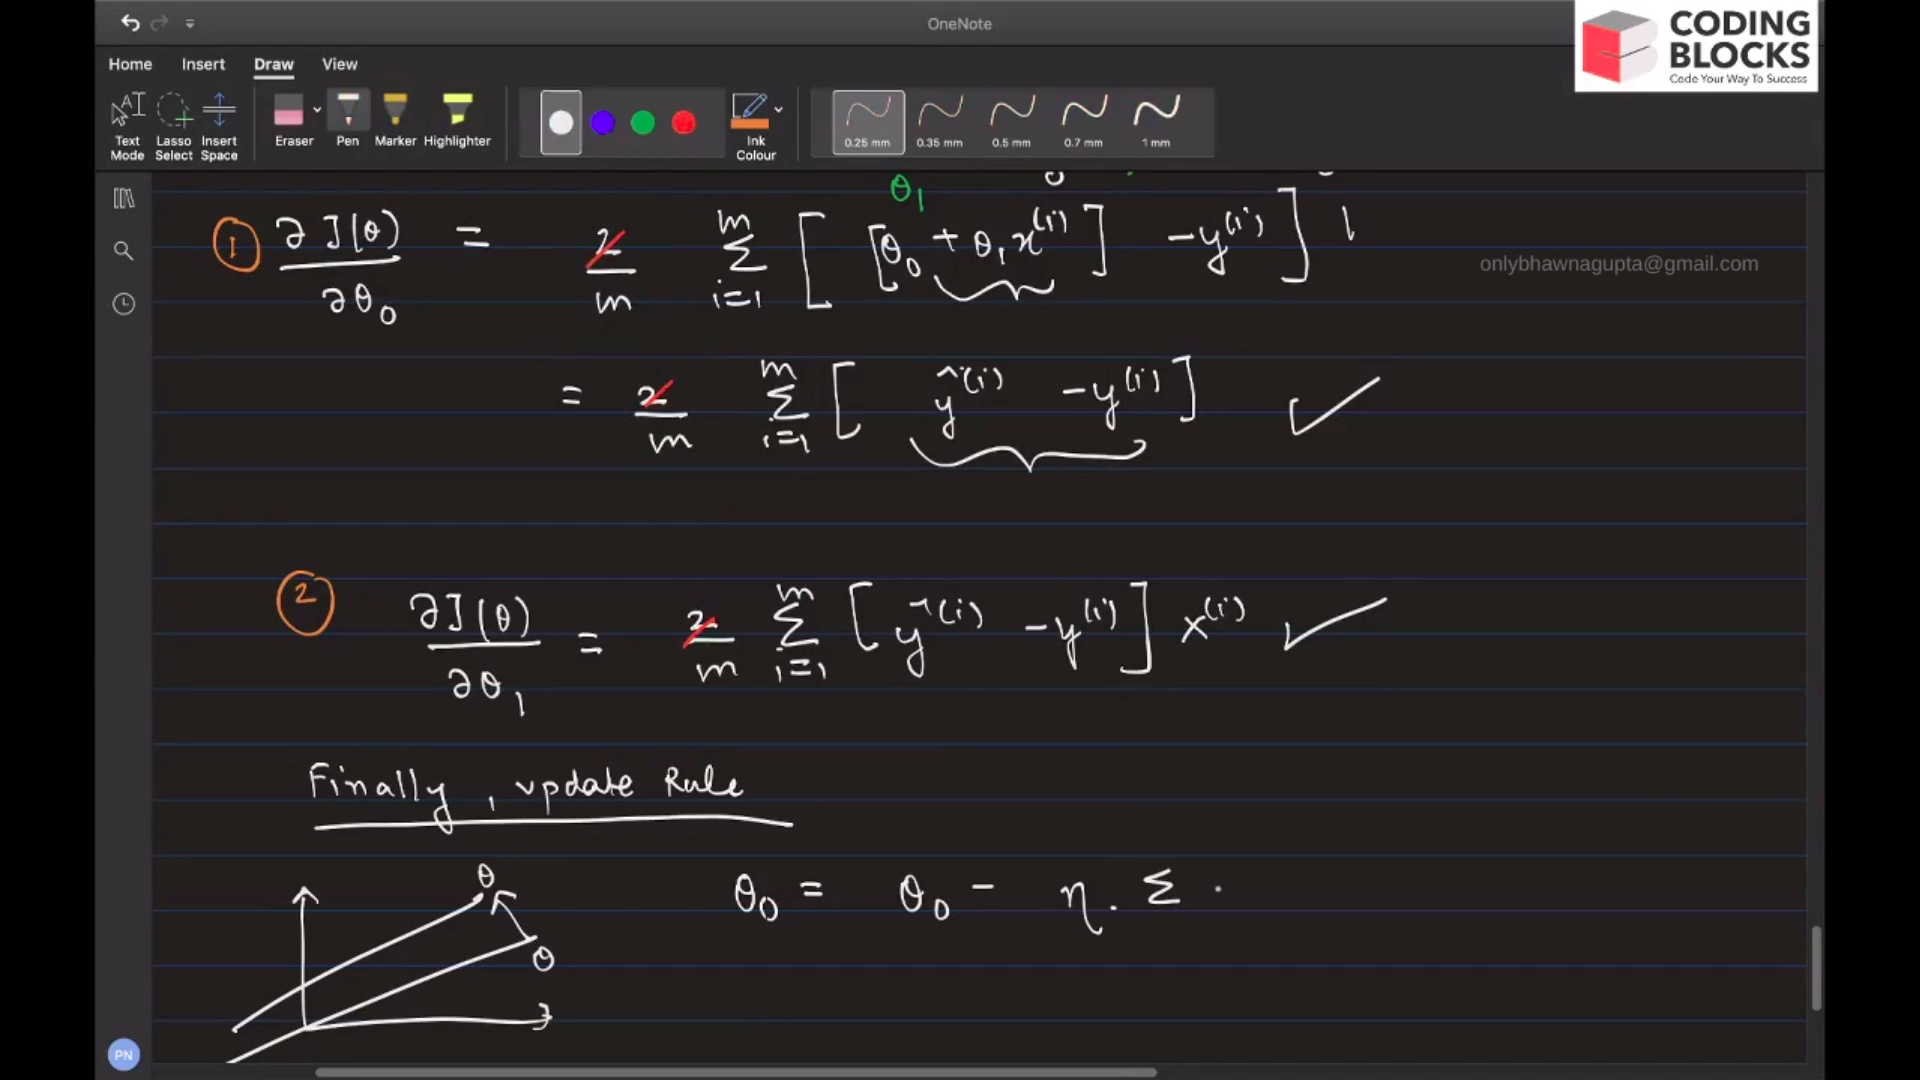 OneNote
CODING
BLOCKS
Code Your Way To Success
Home Insert Draw View
Text Mode Lasso Select Insert Space Eraser Pen Marker Highlighter Ink Colour 0.25 mm 0.35 mm 0.5 mm 0.7 mm 1 mm
θ₁
① ∂J(θ)/∂θ₀ = 2/m Σ_{i=1}^{m} [ [θ₀ + θ₁x⁽ⁱ⁾] - y⁽ⁱ⁾ ] 1
onlybhawnagupta@gmail.com
= 2/m Σ_{i=1}^{m} [ ŷ⁽ⁱ⁾ - y⁽ⁱ⁾ ] ✓
② ∂J(θ)/∂θ₁ = 2/m Σ_{i=1}^{m} [ ŷ⁽ⁱ⁾ - y⁽ⁱ⁾ ] x⁽ⁱ⁾ ✓
Finally, update Rule
θ
θ₀ = θ₀ - η. Σ
θ
PN